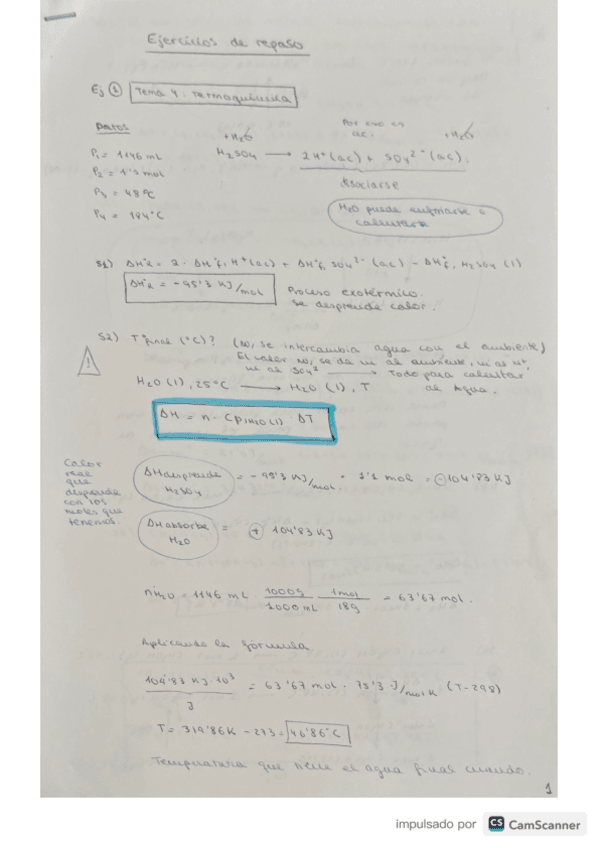 Ejercicios de repaso
Ej ① Tema 4. Termoquímica
Datos
P₁ = 1146 mL
P₂ = 1'1 mol
P₃ = 48 °C
P₄ = 184 °C
+H₂O Por eso es ac. +H₂O
H₂SO₄ → 2H⁺(ac) + SO₄²⁻(ac).
disociarse
H₂O puede enfriarse o
calentarse
S1) ΔH°R = 2 · ΔH°f, H⁺(ac) + ΔH°f, SO₄²⁻(ac) - ΔH°f, H₂SO₄ (l)
ΔH°R = -95'3 KJ/mol
Proceso exotérmico.
Se desprende calor.
S2) Tª final (°C)? (No, se intercambia agua con el ambiente)
El calor no, se da ni al ambiente, ni al H⁺,
ni al SO₄² → Todo para calentar
al Agua.
H₂O (l), 25°C → H₂O (l), T
ΔH = n · Cp, H₂O (l) · ΔT
Calor
real
que
desprende
con los
moles que
tenemos.
ΔH desprende H₂SO₄ = -95'3 KJ/mol · 1'1 mol = -104'83 KJ
ΔH absorbe H₂O = + 104'83 KJ
nH₂O = 1146 mL · 1000g/1000 mL · 1mol/18g = 63'67 mol.
Aplicando la fórmula
104'83 KJ·10³/J = 63'67 mol · 75'3 J/mol K (T-298)
T = 319'86K - 273 = 46'86°C
Temperatura que tiene el agua cuando.
1
impulsado por CS CamScanner